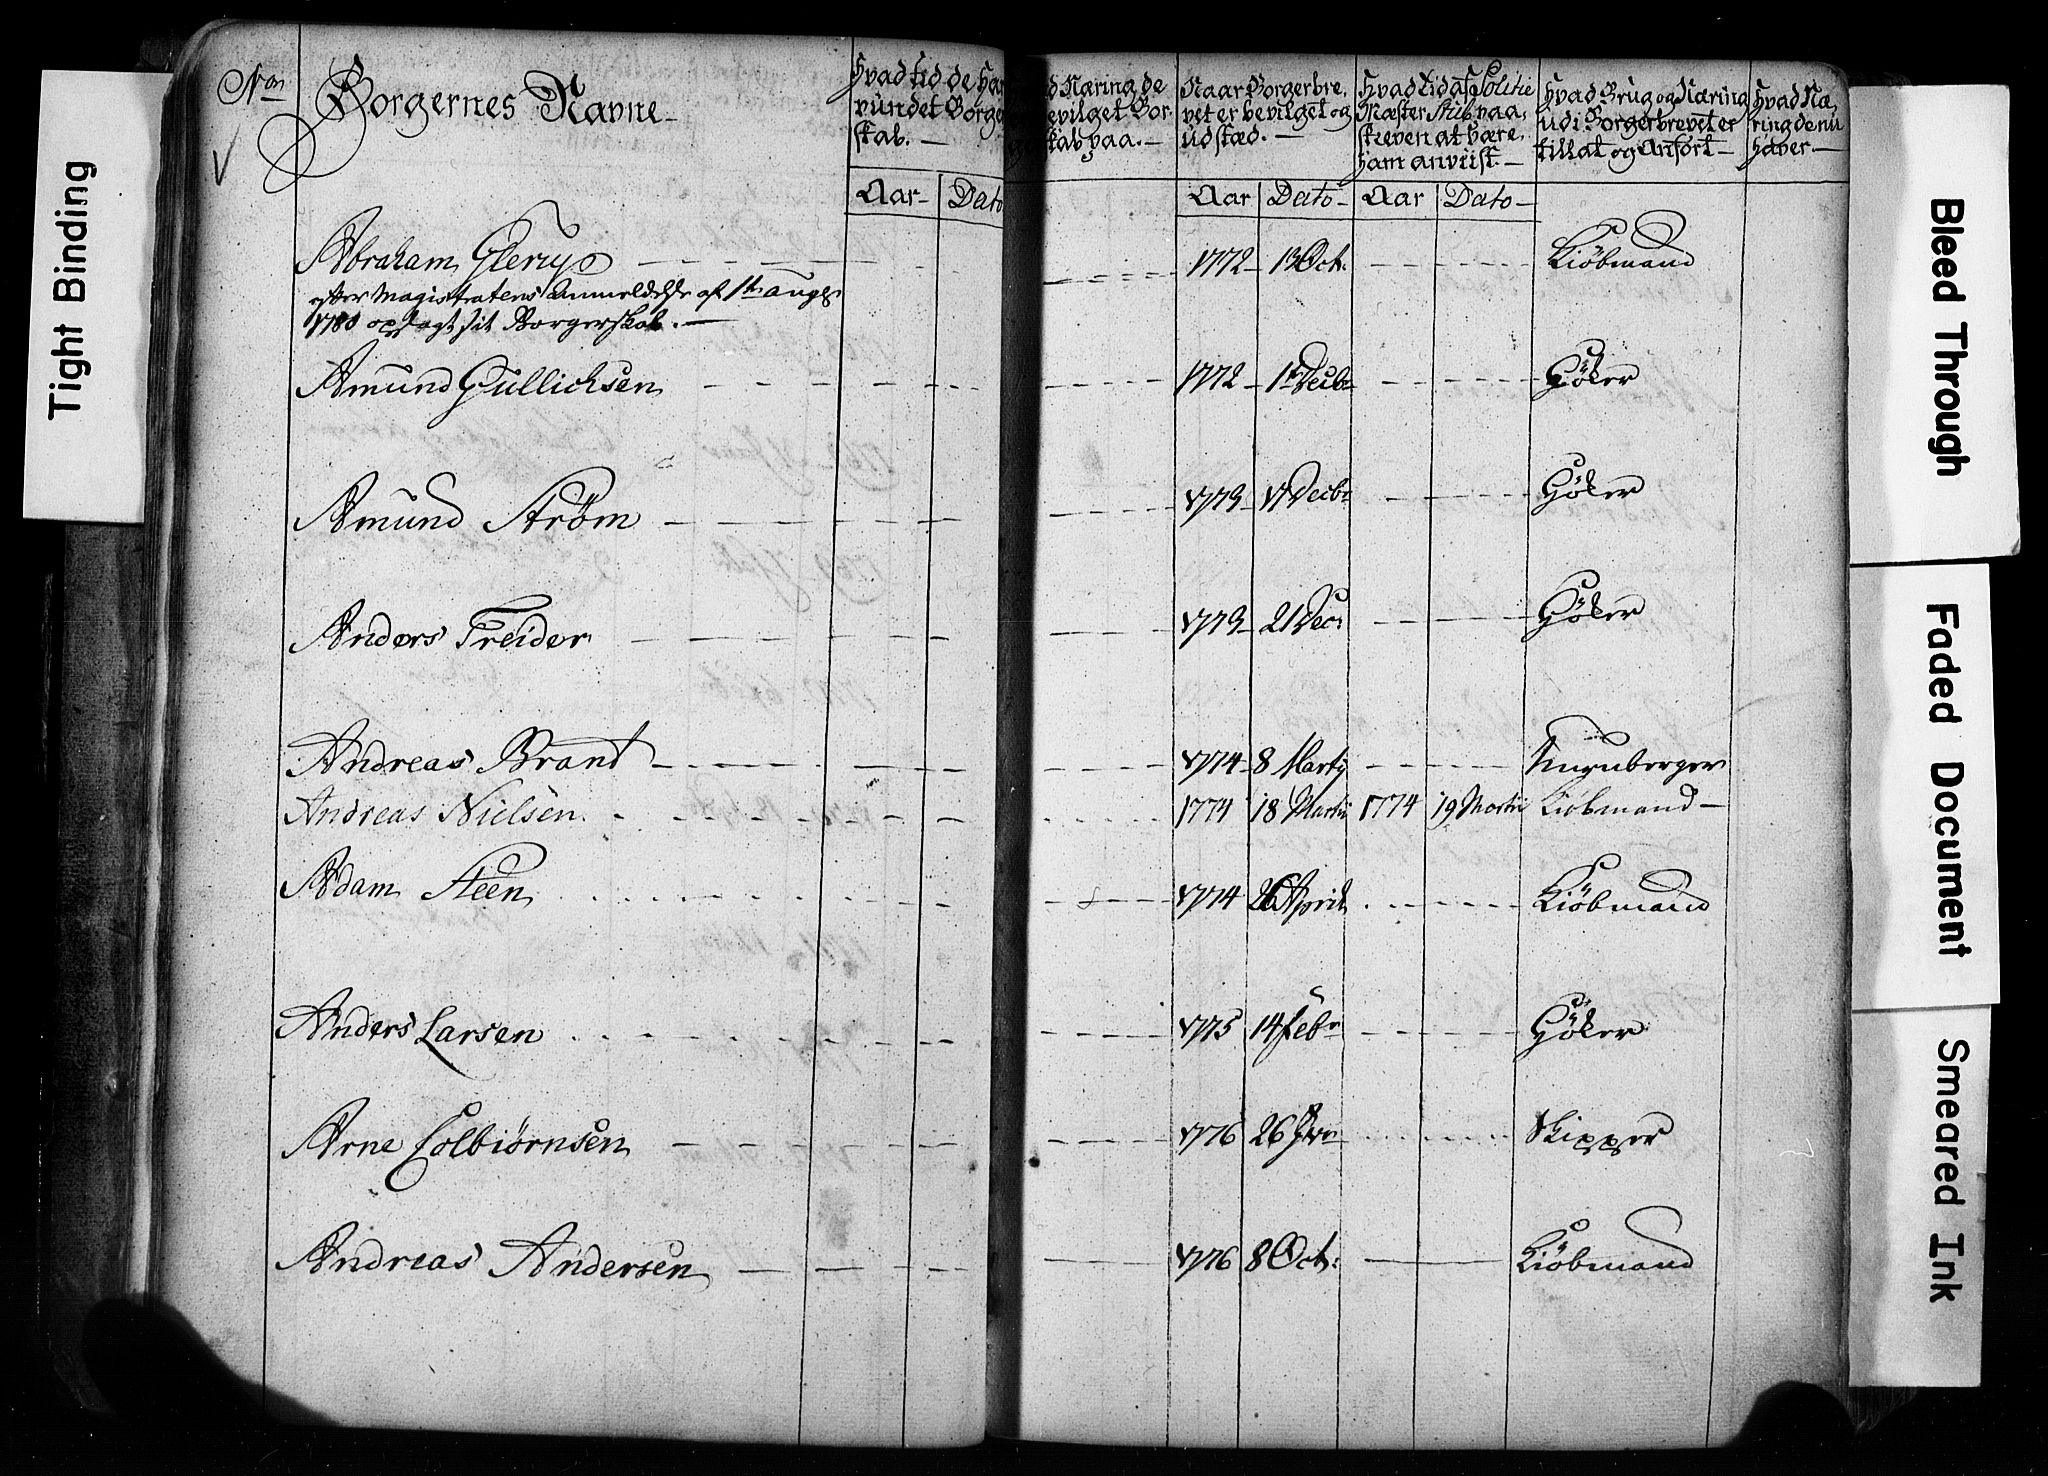 Tight Binding
Bleed Through
Faded Document
Smeared Ink
Non
Borgernes Navne
Hvad tid de har
vundet Borger
skab.
Aar Dato
d Næring de
evilget Bor-
skab paa.
Naar Borgerbre-
vet er bevilget og
udstæd.
Aar Dato
Hvad tid af Politie
Mæster Skib paa-
skreven at være
ham anviist
Aar Dato
Hvad Brug og Næring
udi Borgerbrevet er
tillat og Anført
Hvad Næ-
ring de nu
haver
Abraham Glerup 1772 13 Oct. Kiöbmand
efter Magistratens Anmeldelse af 1te Aug
1780 opsagt sit Borgerskab.
Amund Gullichsen 1772 1te Decbr Höker
Amund Strøm 1773 17 Decbr Höker
Anders Treider 1773 21 Dec Höker
Andreas Brant 1774 8 Martij Nurnberger
Andreas Nielsen 1774 18 Martii 1774 19 Martii Kiöbmand
Adam Steen 1774 26 April Kiöbmand
Anders Larsen 1775 14 Febr Höker
Arne Colbiørnsen 1776 26 Skipper
Andreas Andersen 1776 8 Oct. Kiöbmand